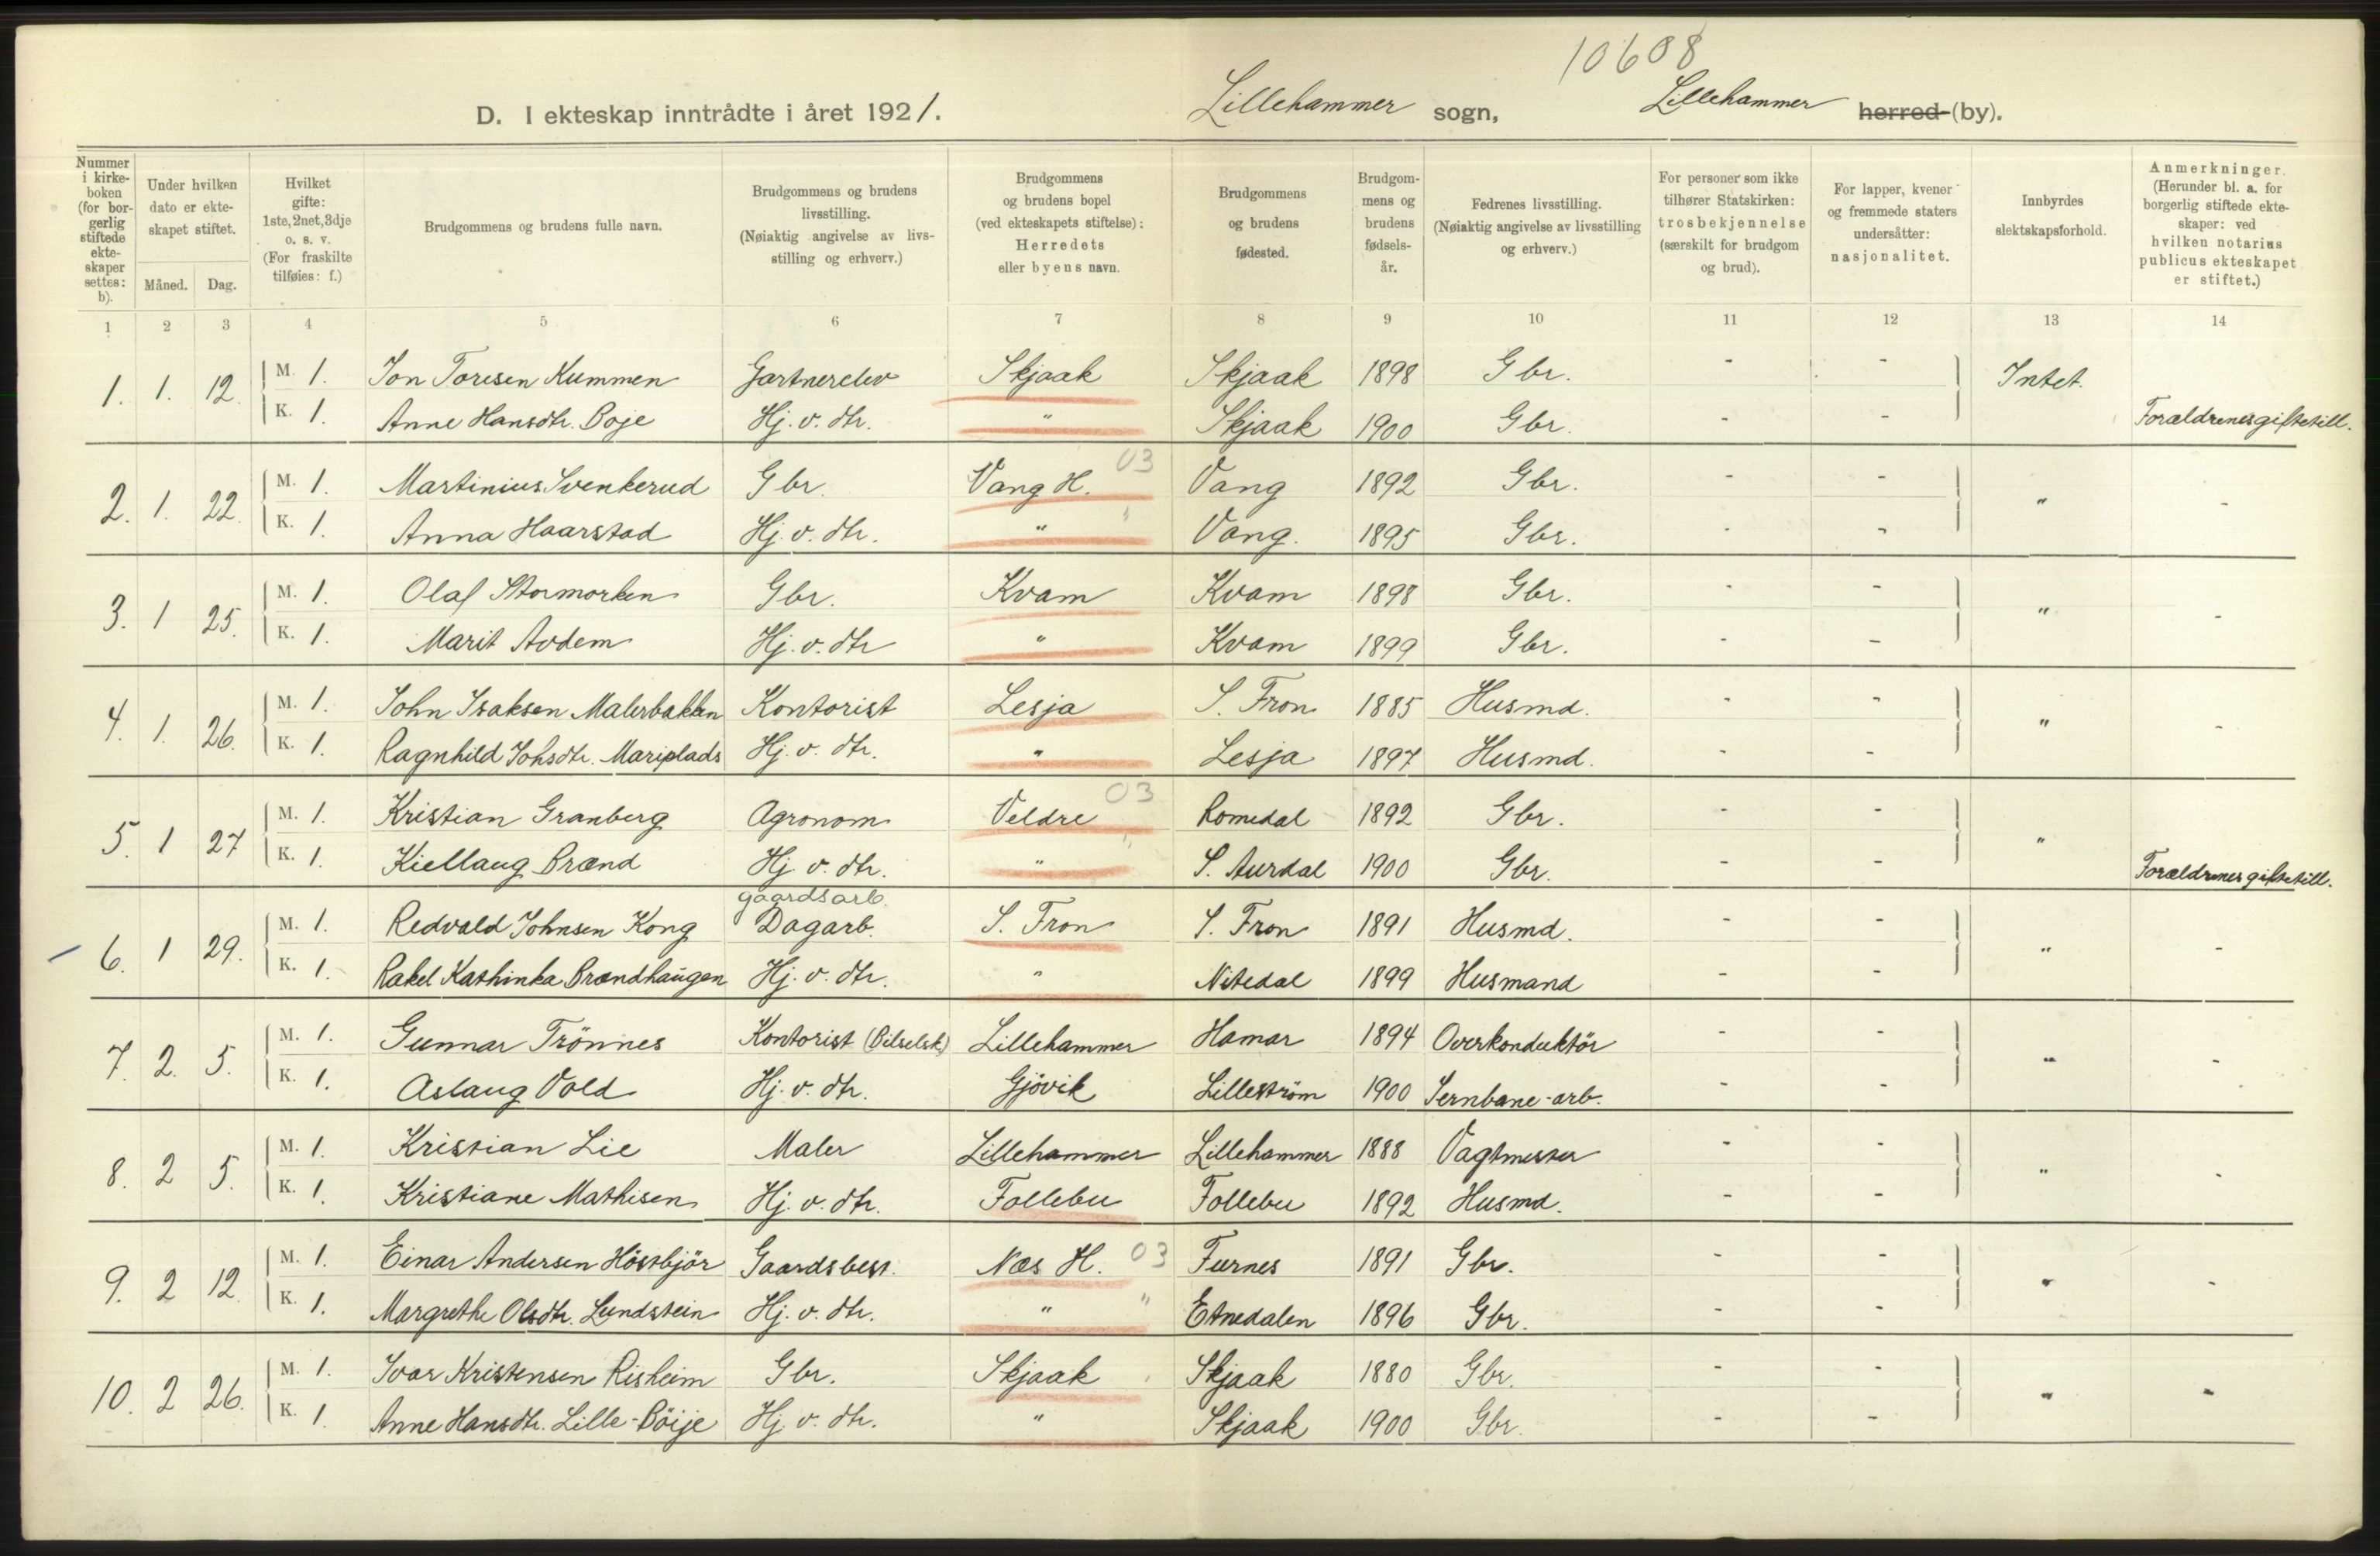 10608
D. I ekteskap inntrådte i året 1921. Lillehammer sogn, Lillehammer herred (by).
Nummer i kirke-boken (for bor-gerlig stiftede ekte-skaper settes: b).
Under hvilken dato er ekte-skapet stiftet.
Måned. Dag.
Hvilket gifte: 1ste, 2net, 3dje o. s. v. (For fraskilte tilføies: f.)
Brudgommens og brudens fulle navn.
Brudgommens og brudens livsstilling. (Nøiaktig angivelse av livs-stilling og erhverv.)
Brudgommens og brudens bopel (ved ekteskapets stiftelse): Herredets eller byens navn.
Brudgommens og brudens fødested.
Brudgom-mens og brudens fødsels-år.
Fedrenes livsstilling. (Nøiaktig angivelse av livsstilling og erhverv.)
For personer som ikke tilhører Statskirken: trosbekjennelse (særskilt for brudgom og brud).
For lapper, kvener og fremmede staters undersåtter: nasjonalitet.
Innbyrdes slektskapsforhold.
Anmerkninger. (Herunder bl. a. for borgerlig stiftede ekte-skaper: ved hvilken notarius publicus ekteskapet er stiftet.)
1 2 3 4 5 6 7 8 9 10 11 12 13 14
1. 1. 12. M. 1. Jon Toresen Kummen Gartnerelev Skjaak Skjaak 1898 Gbr. - - Intet.
K. 1. Anne Hansdtr. Böje Hj. v. dtr. " Skjaak 1900 Gbr. - - Forældrenes giftetill.
2. 1. 22. M. 1. Martinius Svenkerud Gbr. Vang H. 03 Vang 1892 Gbr. - - " -
K. 1. Anna Haarstad Hj. v. dtr. " " Vang. 1895 Gbr. - -
3. 1 25. M. 1. Olaf Stormorken Gbr. Kvam Kvam 1898 Gbr. - - " -
K. 1. Marit Avdem Hj. v. dtr " Kvam 1899 Gbr. - -
4. 1. 26. M. 1. John Isaksen Malerbakken Kontorist Lesja S. Fron 1885 Husmd. - - " -
K. 1. Ragnhild Johsdtr. Mariplads Hj. v. dtr. " Lesja 1897 Husmd. - -
5. 1 27 M. 1. Kristian Granberg Agronom Veldre 03 Romedal 1892 Gbr. - - "
K. 1. Kiellaug Brænd Hj. v. dtr. " " S. Aurdal 1900 Gbr. - - Forældrenes giftetill.
gaardsarb.
6. 1 29. M. 1. Redvald Johnsen Kong Dagarb. S. Fron S. Fron 1891 Husmd. - - " -
K. 1. Rakel Kathinka Brændhaugen Hj. v. dtr. " Nitedal 1899 Husmand - -
7. 2. 5. M. 1. Gunnar Trönnes Kontorist (Bilselsk.) Lillehammer Hamar 1894 Overkonduktör - - " -
K. 1. Aslaug Vold Hj. v. dtr. Gjövik Lilleström 1900 Jernbane-arb. - -
8. 2 5. M. 1. Kristian Lie Maler Lillehammer Lillehammer 1888 Vagtmester - - " -
K. 1. Kristiane Mathisen Hj. v. dtr. Follebu Follebu 1892 Husmd. - -
9. 2 12. M. 1. Einar Andersen Höstbjör Gaardsbest. Nes H. 03 Furnes 1891 Gbr. - - " -
K. 1. Margrethe Olsdtr. Lundstein Hj. v. dtr. " " Etnedalen 1896 Gbr. - -
10. 2 26. M. 1. Ivar Kristensen Risheim Gbr. Skjaak Skjaak 1880 Gbr. - - " -
K. 1. Anne Hansdtr. Lille-Böije Hj. v. dtr. " Skjaak 1900 Gbr. - -